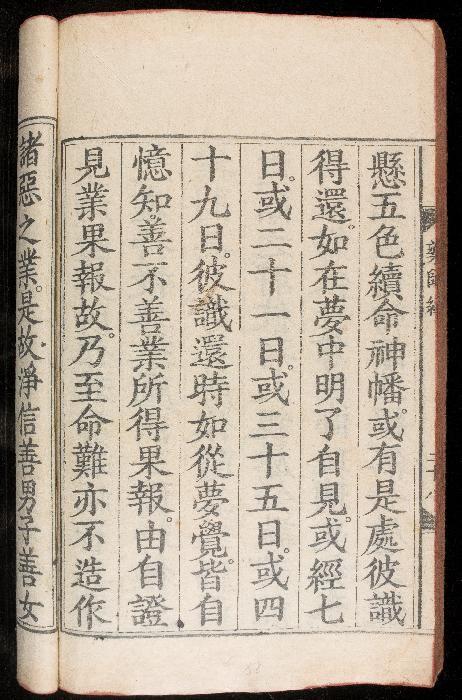 藥師經
懸五色續命神幡。或有是處彼識
得還。如在夢中明了自見。或經七
日。或二十一日。或三十五日。或四
十九日。彼識還時如從夢覺。皆自
憶知。善不善業所得果報。由自證
見業果報故。乃至命難亦不造作
諸惡之業。是故淨信善男子善女